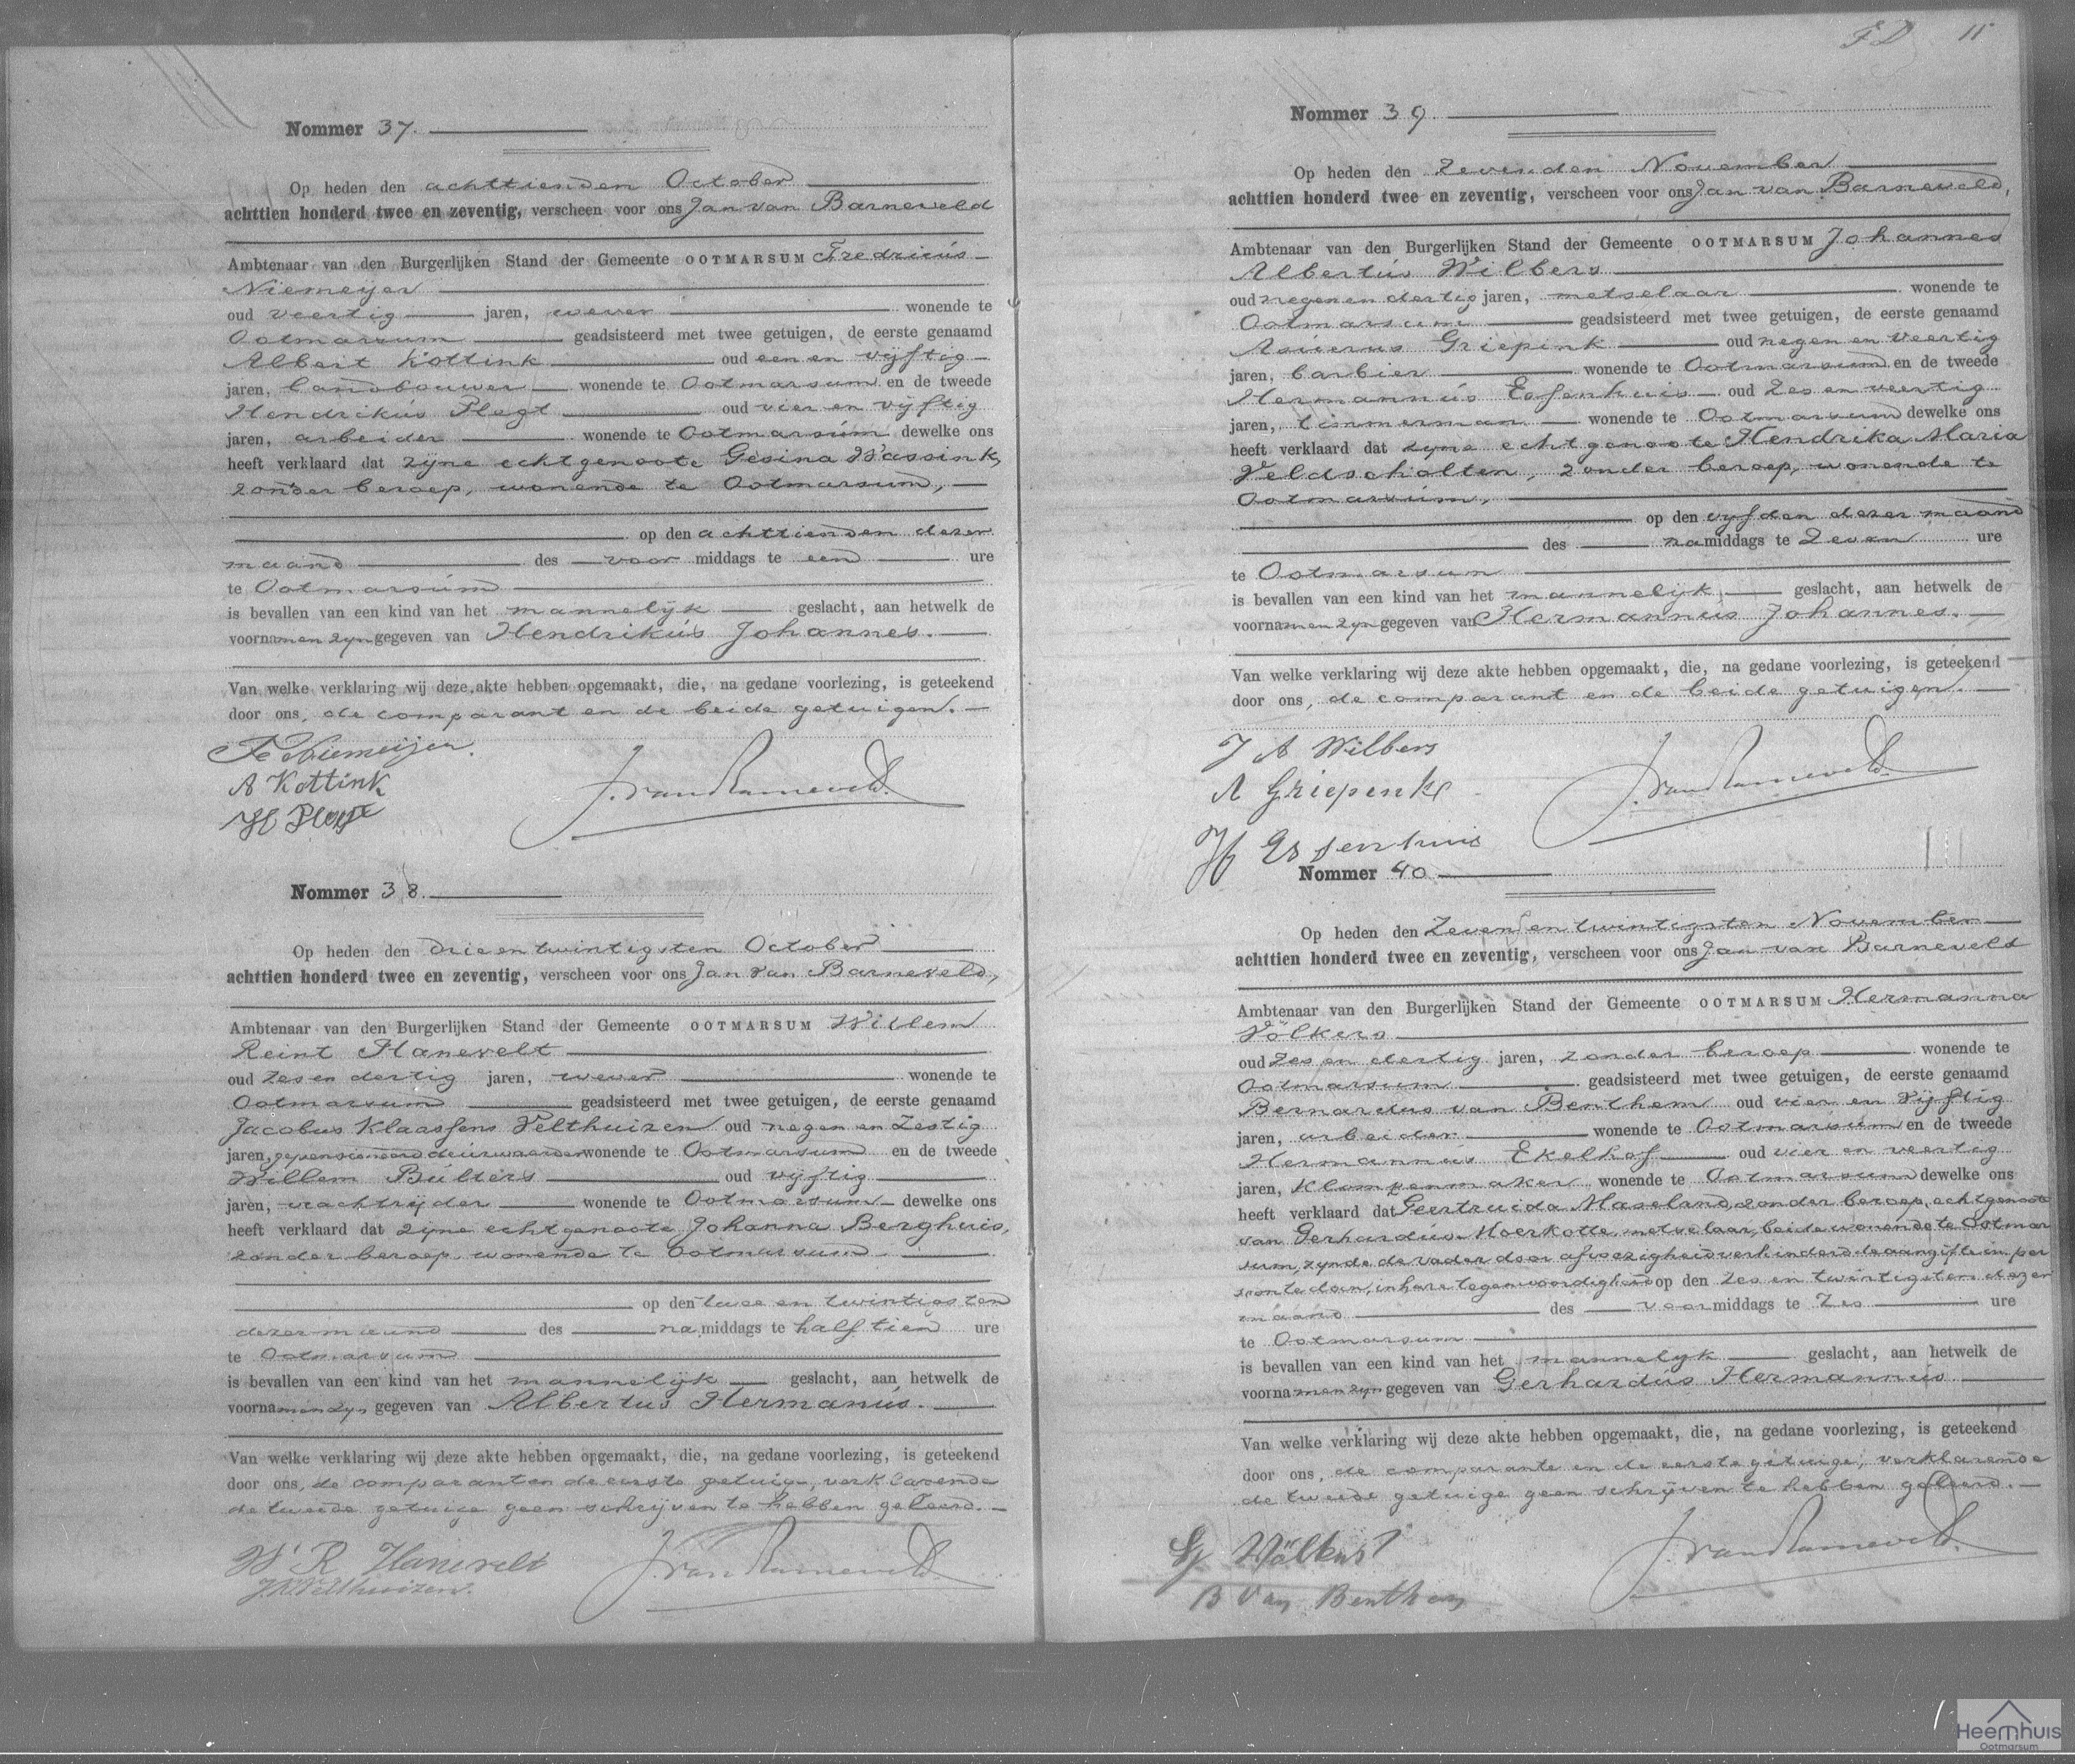 Nommer 37.
Op heden den achttienden October
achttien honderd twee en zeventig, verscheen voor ons Jan van Barneveld
Ambtenaar van den Burgerlijken Stand der Gemeente OOTMARSUM Fredricus
Niemeijer
oud veertig jaren, wever wonende te
Ootmarsum geadsisteerd met twee getuigen, de eerste genaamd
Albert Kottink oud een en vijftig
jaren, landbouwer wonende te Ootmarsum en de tweede
Hendrikus Plegt oud vier en vijftig
jaren, arbeider wonende te Ootmarsum dewelke ons
heeft verklaard dat zijne echtgenoote Gesina Wassink,
zonder beroep, wonende te Ootmarsum,
op den achttienden dezer
maand des voor middags te een ure
te Ootmarsum
is bevallen van een kind van het mannelijk geslacht, aan hetwelk de
voornamen zijn gegeven van Hendrikus Johannes.
Van welke verklaring wij deze akte hebben opgemaakt, die, na gedane voorlezing, is geteekend
door ons, de comparant en de beide getuigen.
Fe Niemeijer
A Kottink
H Plegt
J. van Barneveld.
Nommer 38.
Op heden den drie en twintigsten October
achttien honderd twee en zeventig, verscheen voor ons Jan van Barneveld,
Ambtenaar van den Burgerlijken Stand der Gemeente OOTMARSUM Willem
Reint Hanevelt
oud zes en dertig jaren, wever wonende te
Ootmarsum geadsisteerd met twee getuigen, de eerste genaamd
Jacobus Klaassens Velthuizen oud negen en zestig
jaren, gepensioneerd deurwaarder wonende te Ootmarsum en de tweede
Willem Bulters oud vijftig
jaren, vrachtrijder wonende te Ootmarsum dewelke ons
heeft verklaard dat zijne echtgenoote Johanna Berghuis,
zonder beroep, wonende te Ootmarsum
op den twee en twintigsten
dezer maand des na middags te half tien ure
te Ootmarsum
is bevallen van een kind van het mannelijk geslacht, aan hetwelk de
voornamen zijn gegeven van Albertus Hermanus.
Van welke verklaring wij deze akte hebben opgemaakt, die, na gedane voorlezing, is geteekend
door ons, de comparant en de eerste getuige, verklarende
de tweede getuige geen schrijven te hebben geleerd.
W R Hanevelt
J.K. Velthuizen.
J. van Barneveld.
11
Nommer 39.
Op heden den zevenden November
achttien honderd twee en zeventig, verscheen voor ons Jan van Barneveld,
Ambtenaar van den Burgerlijken Stand der Gemeente OOTMARSUM Johannes
Albertus Wilbers
oud negen en dertig jaren, metselaar wonende te
Ootmarsum geadsisteerd met twee getuigen, de eerste genaamd
Griepink oud negen en veertig
jaren, barbier wonende te Ootmarsum en de tweede
Hermannus Essenhuis oud zes en veertig
jaren, timmerman wonende te Ootmarsum dewelke ons
heeft verklaard dat zijne echtgenoote Hendrika Maria
Veldscholten, zonder beroep, wonende te
Ootmarsum,
op den vijfden dezer maand
des namiddags te zeven ure
te Ootmarsum
is bevallen van een kind van het mannelijk geslacht, aan hetwelk de
voornamen zijn gegeven van Hermannus Johannes.
Van welke verklaring wij deze akte hebben opgemaakt, die, na gedane voorlezing, is geteekend
door ons, de comparant en de beide getuigen.
J A Wilbers
A Griepenk
H Essenhuis
J. van Barneveld.
Nommer 40
Op heden den zeven en twintigsten November
achttien honderd twee en zeventig, verscheen voor ons Jan van Barneveld
Ambtenaar van den Burgerlijken Stand der Gemeente OOTMARSUM Hermanna
Völkers
oud zes en dertig jaren, zonder beroep wonende te
Ootmarsum geadsisteerd met twee getuigen, de eerste genaamd
Bernardus van Benthem oud vier en vijftig
jaren, arbeider wonende te Ootmarsum en de tweede
Hermannus Ekelhof oud vier en veertig
jaren, klompenmaker wonende te Ootmarsum dewelke ons
heeft verklaard dat Geertruida Maseland, zonder beroep, echtgenoote
van Gerhardus Moerkotte, metselaar, beide wonende te Ootmar
sum, zijnde de vader door afwezigheid verhinderd de aangifte in per
soon te doen, in hare tegenwoordigheid op den zes en twintigsten dezer
maand des voor middags te zes ure
te Ootmarsum
is bevallen van een kind van het mannelijk geslacht, aan hetwelk de
voornamen zijn gegeven van Gerhardus Hermannus
Van welke verklaring wij deze akte hebben opgemaakt, die, na gedane voorlezing, is geteekend
door ons, de comparante en de eerste getuige, verklarende
de tweede getuige geen schrijven te hebben geleerd.
Völkers
B Van Benthem
J. van Barneveld.
Heemhuis
Ootmarsum